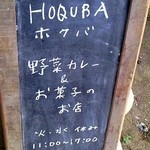 HOQUBA
ホクバ
野菜カレー
&
お菓子の
お店
火・水 休み
11:00〜17:00